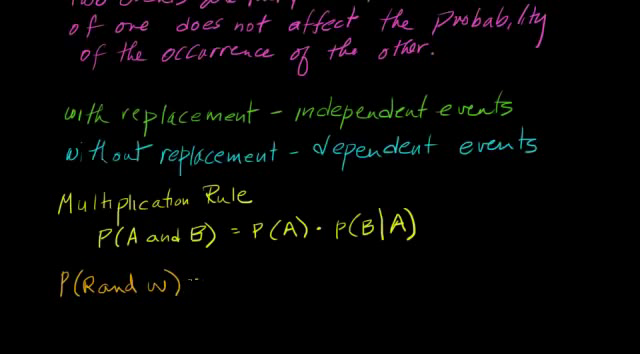 of one does not affect the probability
of the occurrence of the other.
with replacement - independent events
without replacement - dependent events
Multiplication Rule
P(A and B) = P(A) · P(B|A)
P(R and W)